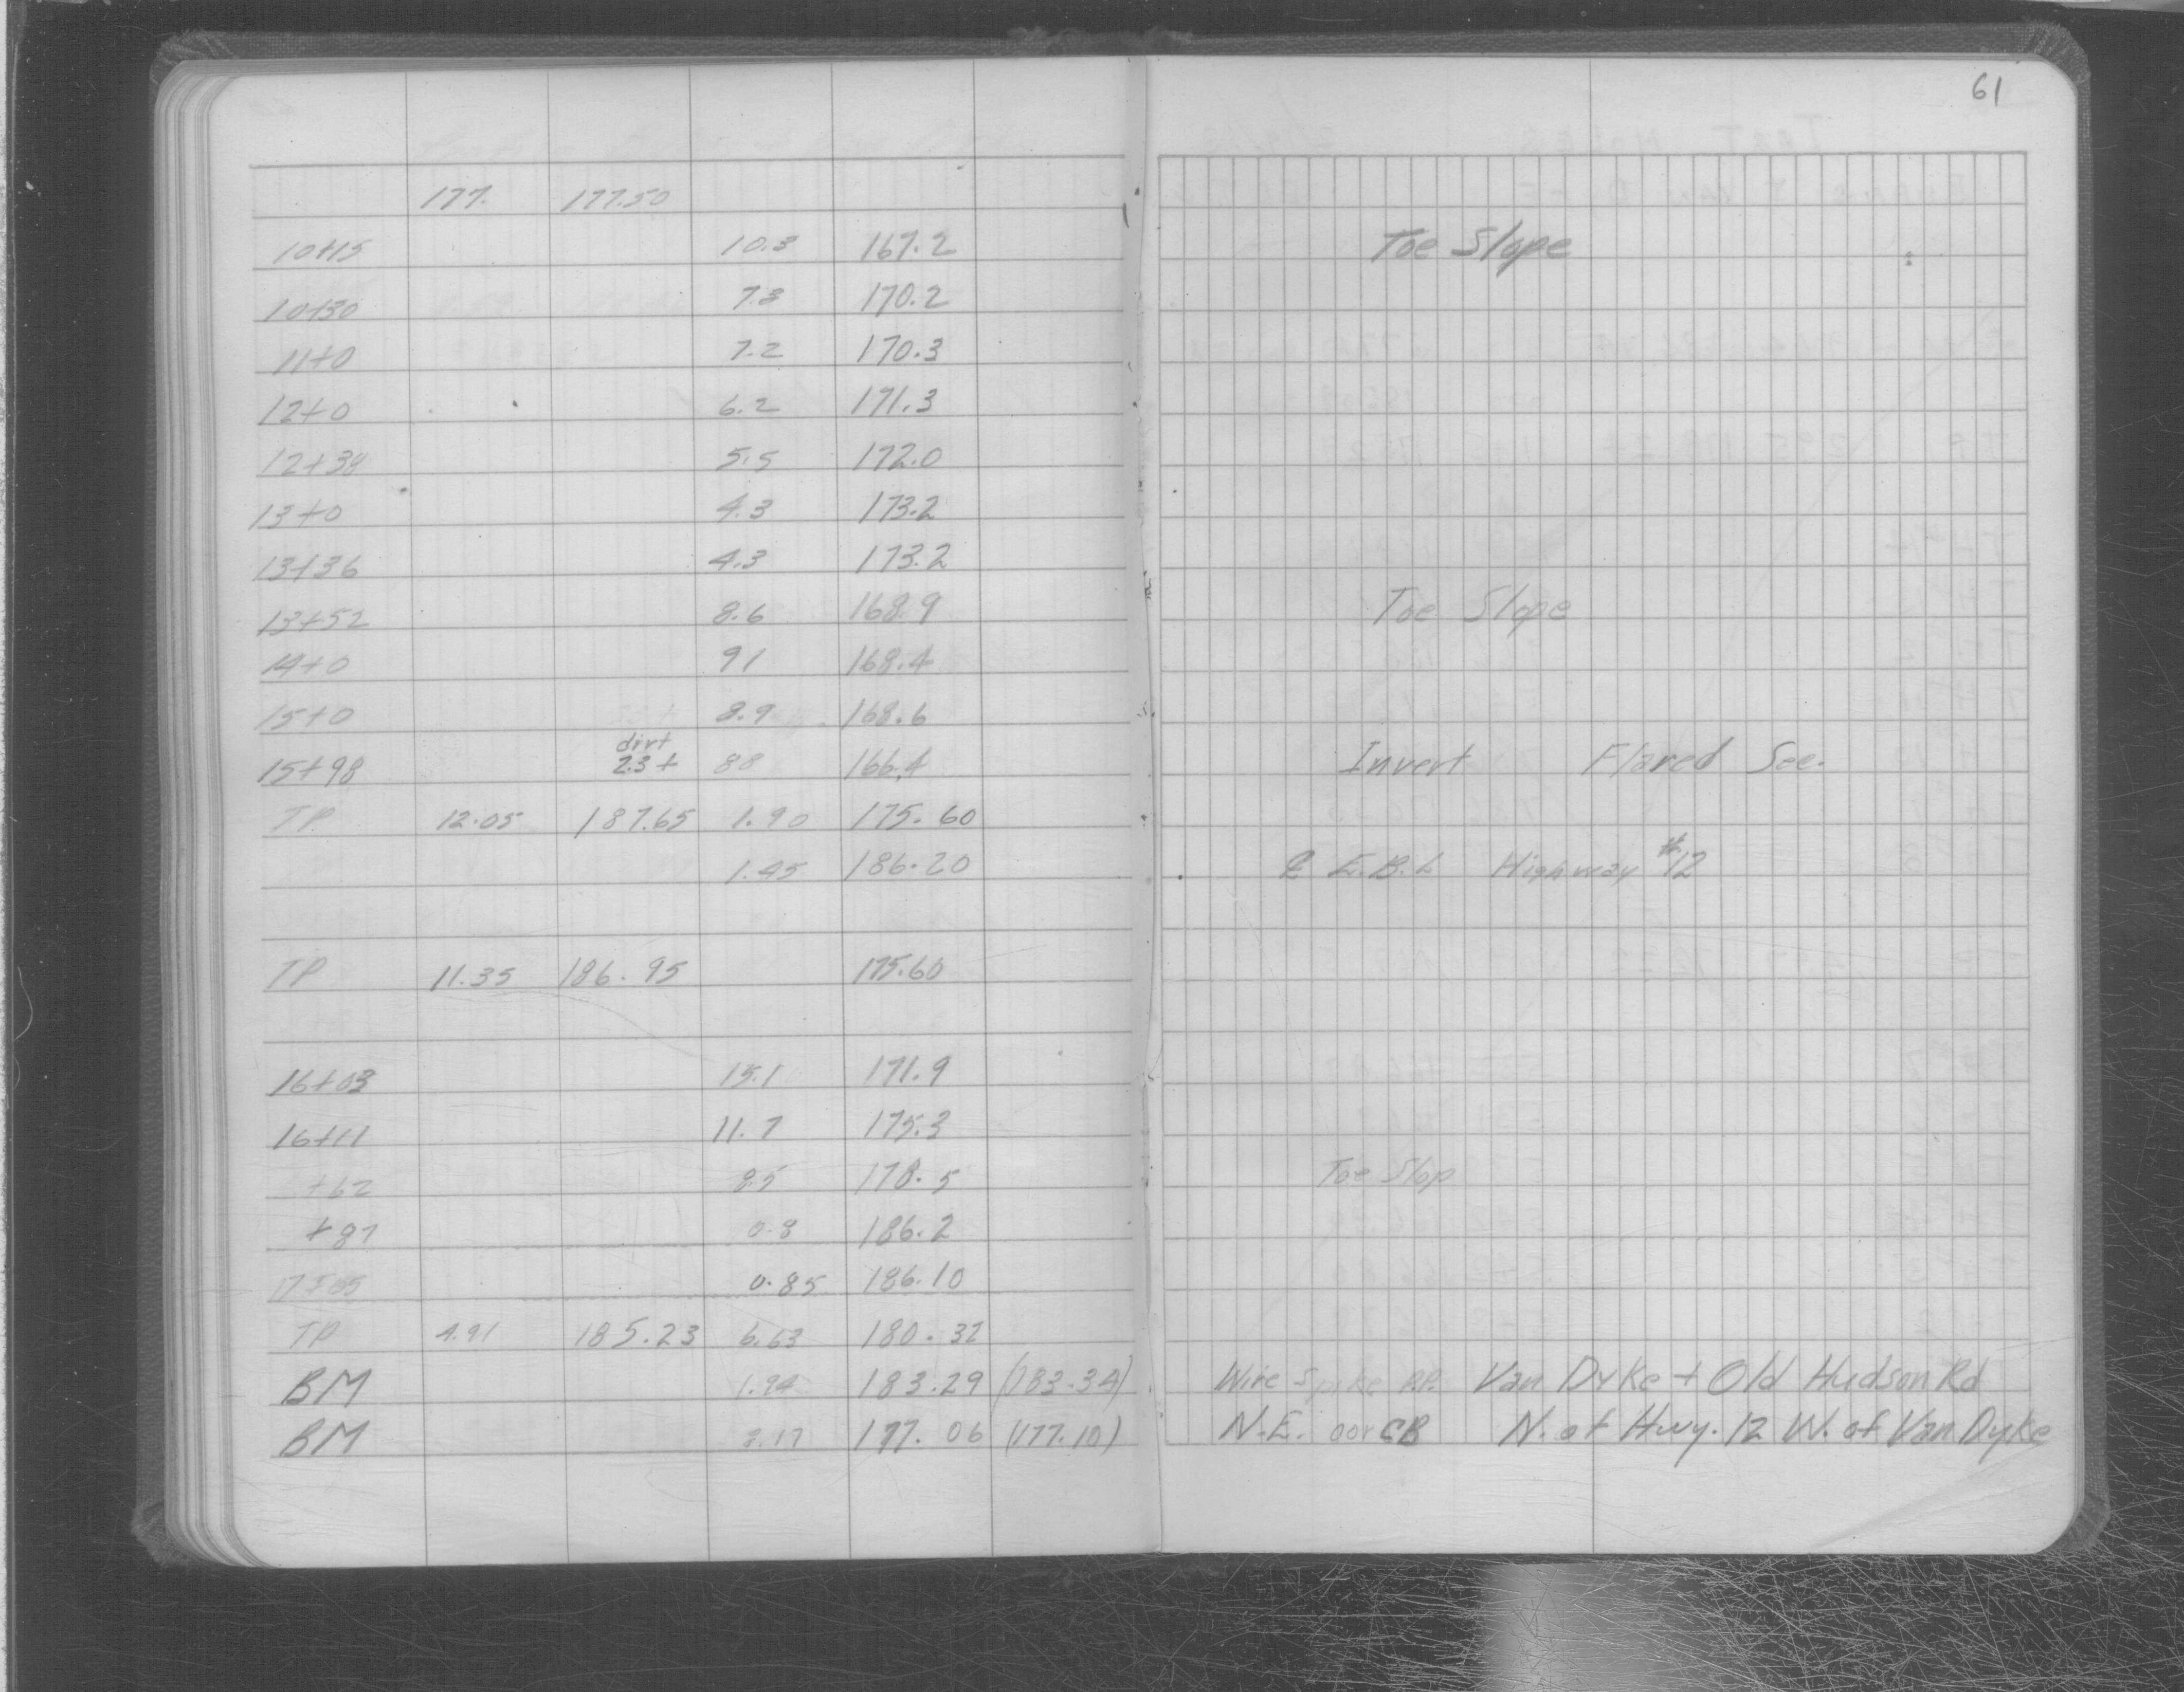 61
177. 177.50
10+15 10.3 167.2 Toe Slope
10+30 7.3 170.2
11+0 7.2 170.3
12+0 6.2 171.3
12+38 5.5 172.0
13+0 4.3 173.2
13+36 4.3 173.2
13+52 8.6 168.9 Toe Slope
14+0 91 168.4
15+0 8.9 168.6
dirt
15+98 2.3+ 88 166.4 Invert Flared Sec.
TP 12.05 187.65 1.90 175.60
1.45 186.20 E.B.L Highway #12
TP 11.35 186.95 175.60
16+03 15.1 171.9
16+11 11.7 175.3
+62 8.5 178.5 Toe Slop
+87 0.8 186.2
0.85 186.10
TP 4.91 185.23 6.63 180.32
BM 1.94 183.29 (183.34) Wire Spike P.P. Van Dyke + Old Hudson Rd
BM 8.17 177.06 (177.10) N.E. cor CB N. of Hwy. 12 W. of Van Dyke